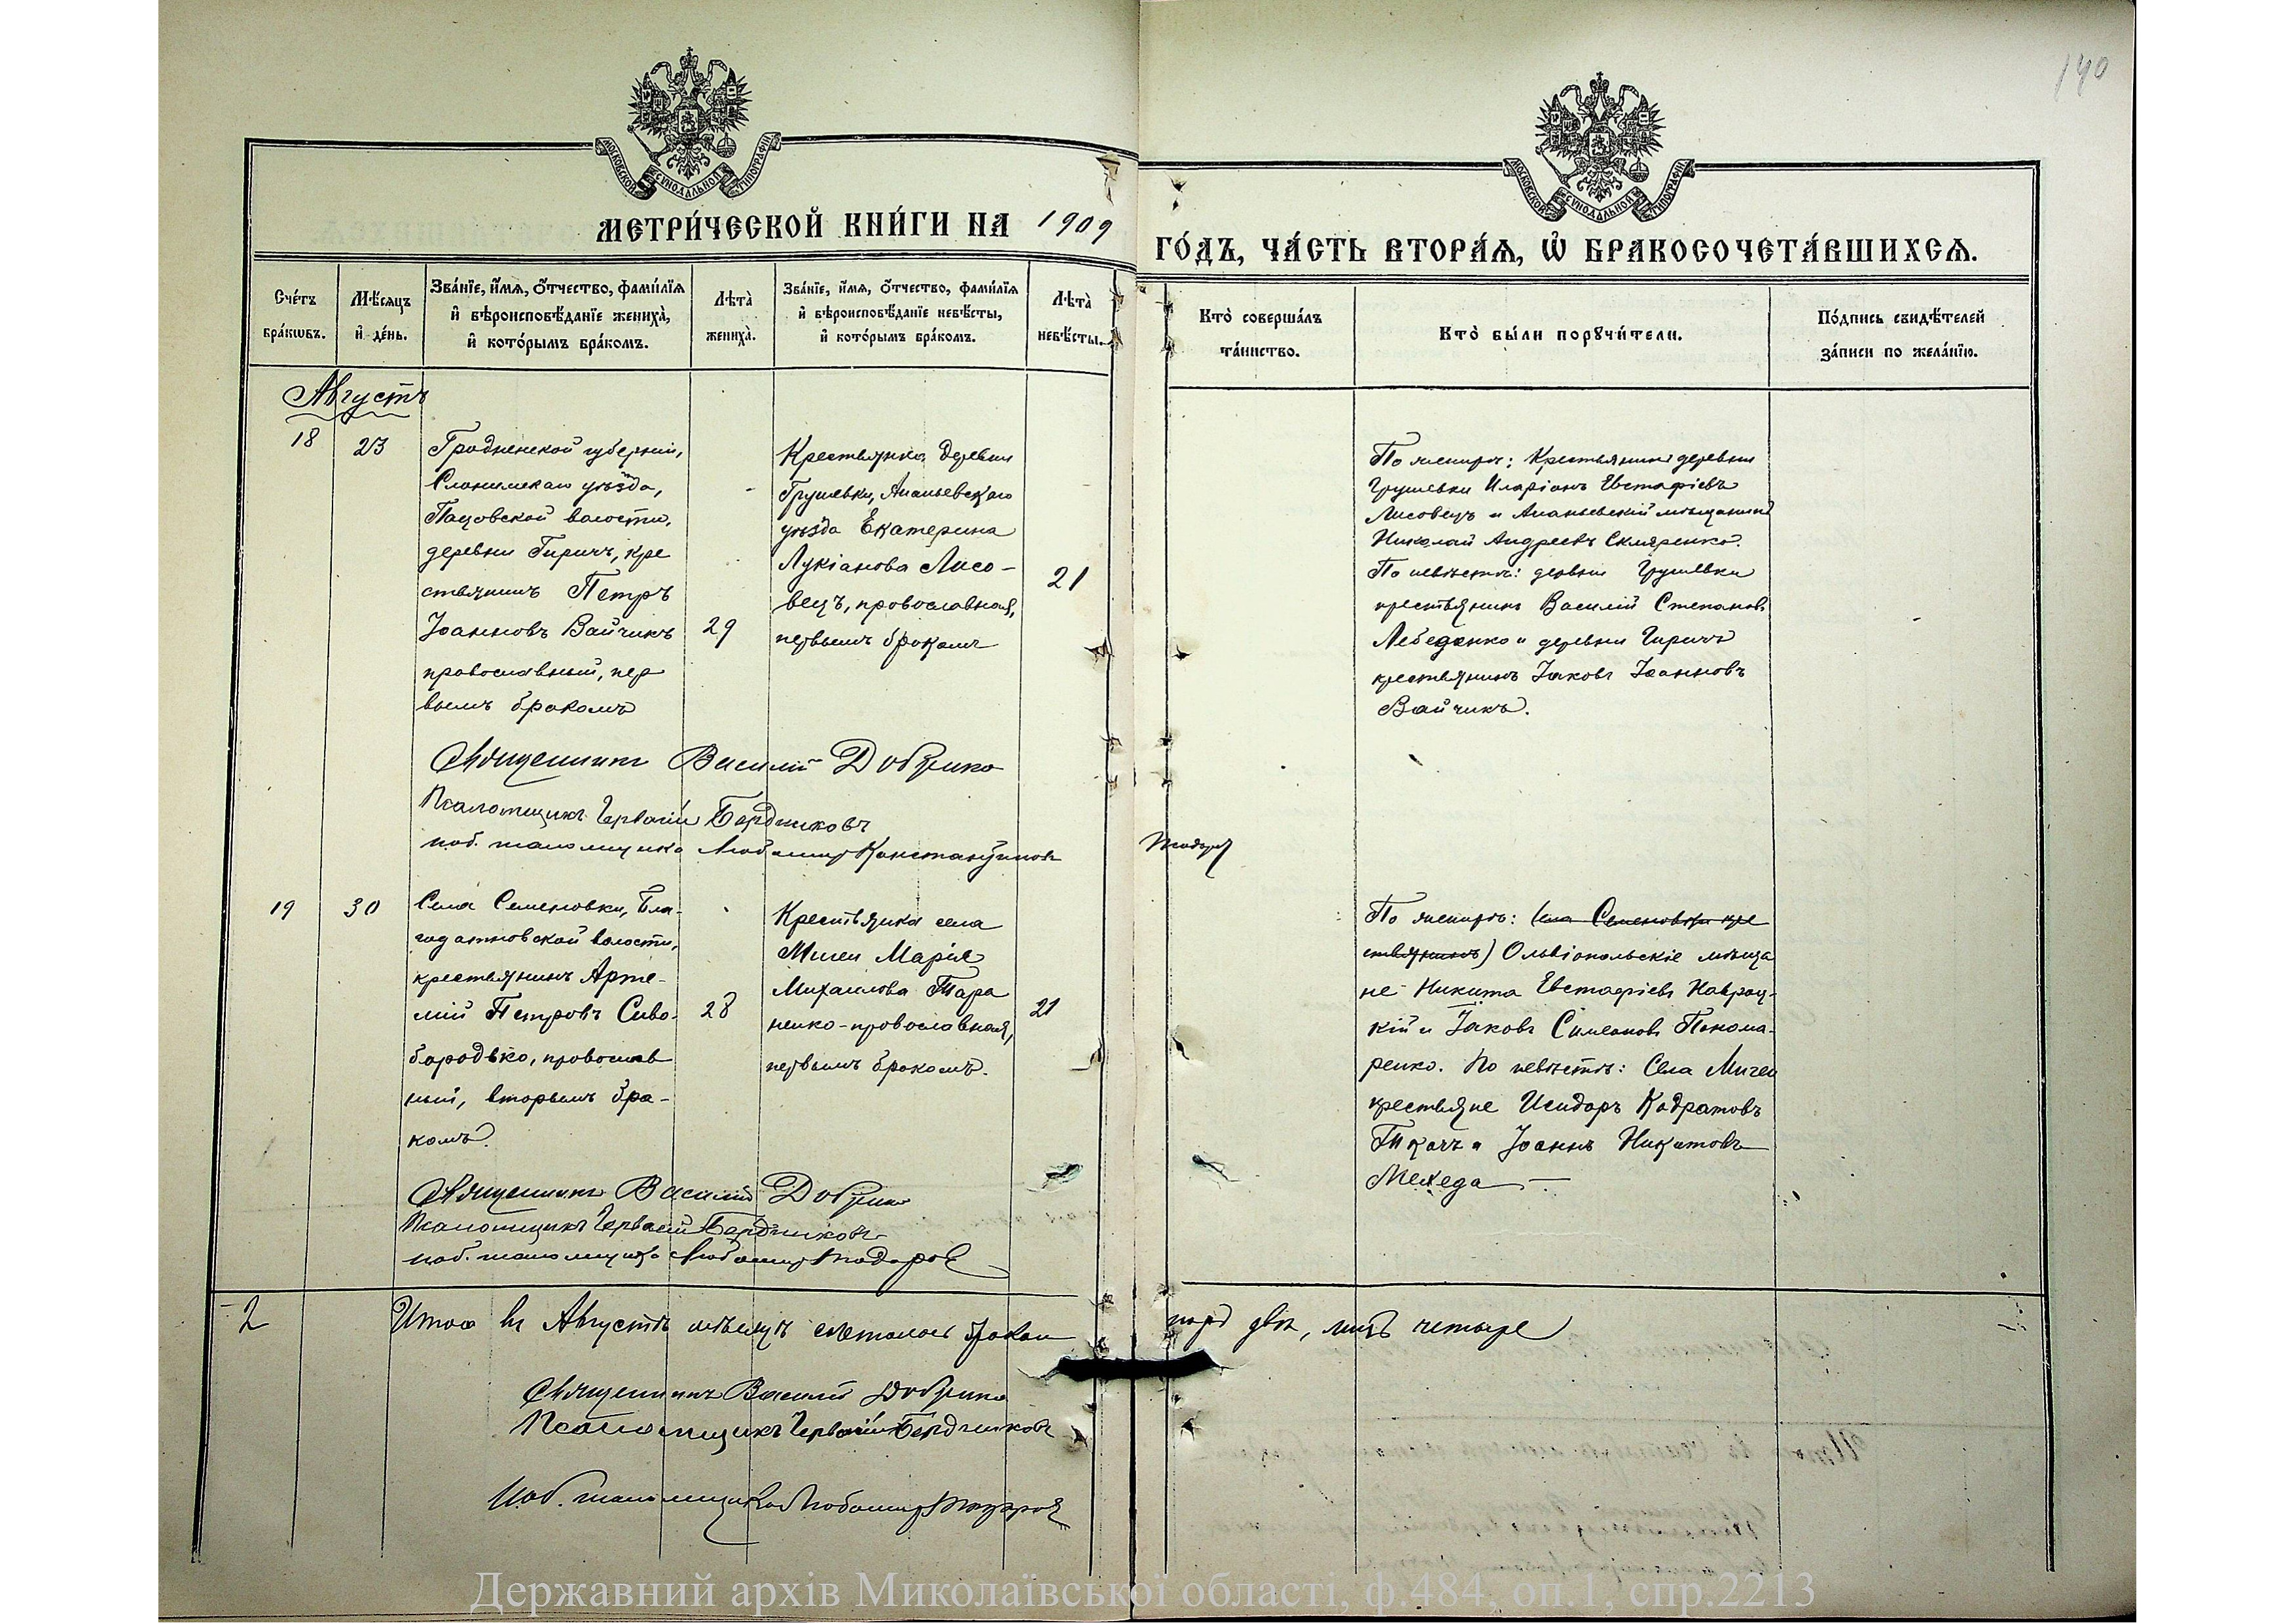 190
МОСКОВСКОЙ СѴНОДАЛЬНОЙ ТИПОГРАФІИ
МОСКОВСКОЙ СѴНОДАЛЬНОЙ ТИПОГРАФІИ
МЕТРИ́ЧЕСКОЙ КНИ́ГИ НА 1909 ГО́ДЪ, ЧА́СТЬ ВТОРА́Ѧ, Ѡ҆ БРАКОСОЧЕТА́ВШИХСѦ.
Сче́тъ бра́кѡвъ.
Мѣ́сѧцъ и҆ де́нь.
Зва́нїе, и҆́мѧ, ѻ҆́тчество, фами́лїѧ и҆ вѣроисповѣ́данїе жениха̀, и҆ кото́рымъ бра́комъ.
Лѣта̀ жениха̀.
Зва́нїе, и҆́мѧ, ѻ҆́тчество, фами́лїѧ и҆ вѣроисповѣ́данїе невѣ́сты, и҆ кото́рымъ бра́комъ.
Лѣта̀ невѣ́сты.
Кто̀ соверша́лъ та́инство.
Кто̀ бы́ли порꙋчи́тели.
По́дпись свидѣ́телей за́писи по жела́нїю.
Августъ
18
23
Гродненской губерніи,
Слонимскаго уѣзда,
Пацовской волости,
деревни Гиричъ, кре
стьянинъ Петръ
Іоанновъ Вайчикъ
православный, пер
вымъ бракомъ
29
Крестьянка деревни
Грушевки, Ананьевскаго
уѣзда Екатерина
Лукіанова Лисо-
вецъ, православная,
первымъ бракомъ
21
По женихѣ: Крестьянинъ деревни
Грушевки Иларіонъ Евстафіевъ
Лисовецъ и Ананьевскій мѣщанинъ
Николай Андреевъ Скляренко.
По невѣстѣ: деревни Грушевки
крестьянинъ Василій Степановъ
Лебеденко и деревни Гиричъ
крестьянинъ Іаковъ Іоанновъ
Вайчикъ.
Священникъ Василій
Псаломщикъ Гервасій Бердниковъ
псаломщика Константинов
19
30
Села Семеновки, Бла-
годатновской волости,
крестьянинъ Арте-
мій Петровъ Сиво-
бородько, православ
ный, вторымъ бра-
комъ.
28
Крестьянка села
Мигеи Марія
Михаилова Тара
ненко - православная,
первымъ бракомъ.
21
По женихѣ: (села Семеновки кре
стьянинъ) Ольвіопольскіе мѣща
не Никита Евстафіевъ Навроц-
кій и Іаковъ Симеоновъ Понома-
ренко. По невѣстѣ: Села Мигеи
крестьяне Исидоръ Кодратовъ
Ткачъ и Іоаннъ Никитовъ
Мехеда
Священникъ Василій
Псаломщикъ Гервасій Бердниковъ
псаломщика
2
Итого въ Августѣ мѣсяцѣ сочеталось бракомъ паръ двѣ, лицъ четыре
Священникъ Василій
Псаломщикъ Гервасій Бердниковъ
псаломщика
Державний архів Миколаївської області, ф.484, оп.1, спр.2213